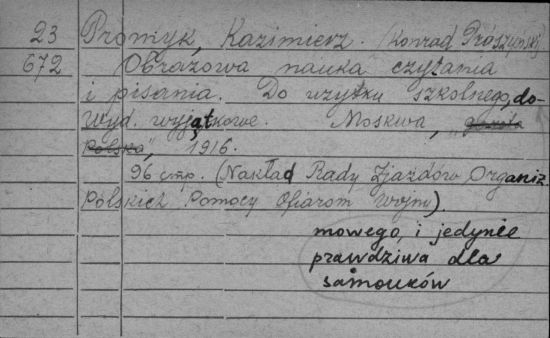 23 Promyk, Kazimierz. (Konrad Prószyński)
672 Obrazowa nauka czytania
i pisania. Do użytku szkolnego, do-
wyd. wyjątkowe. Moskwa, "Gazeta
Polska", 1916.
96 stnp. (Nakład Rady Zjazdów Organiz.
Polskich Pomocy Ofiarom Wojny).
mowego, i jedynie
prawdziwa dla
samouków